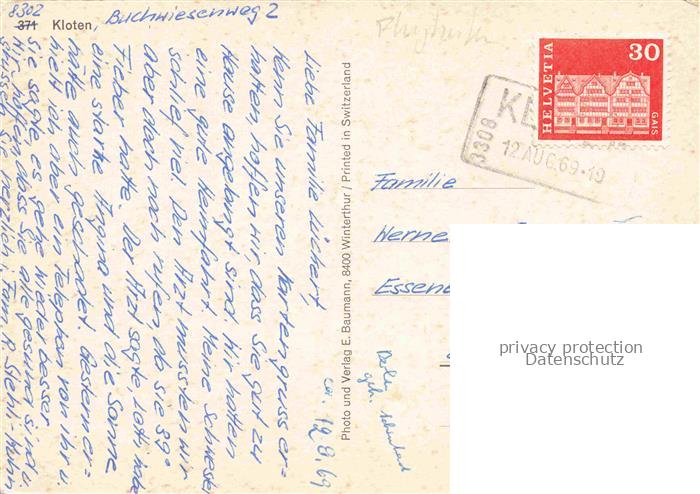 8302
371 Kloten, Buchwiesenweg 2
ca. 12.8.69
Liebe Familie Wichert,
Wenn Sie unseren Kartengruss er-
halten, hoffen wir, dass Sie gut zu
Hause angelangt sind. Wir hatten
eine gute Heimfahrt. Meine Schwester
schlief viel. Den Arzt mussten wir
aber doch noch rufen, da sie 39°
Fieber hatte. Der Arzt sagte, Lotti habe
eine starke Angina und die Sonne
hätte auch geschadet. Gestern er-
hielt ich aber ein Telephon von ihr u.
sie sagte, es gehe wieder besser.
Wir hoffen, dass Sie alle gesund sind u.
grüssen Sie herzlich: Fam. R.
Photo und Verlag E. Baumann, 8400 Winterthur / Printed in Switzerland
HELVETIA
30
GAIS
3308
12.AUG.69-19
Familie
Werner
Essen
privacy protection
Datenschutz